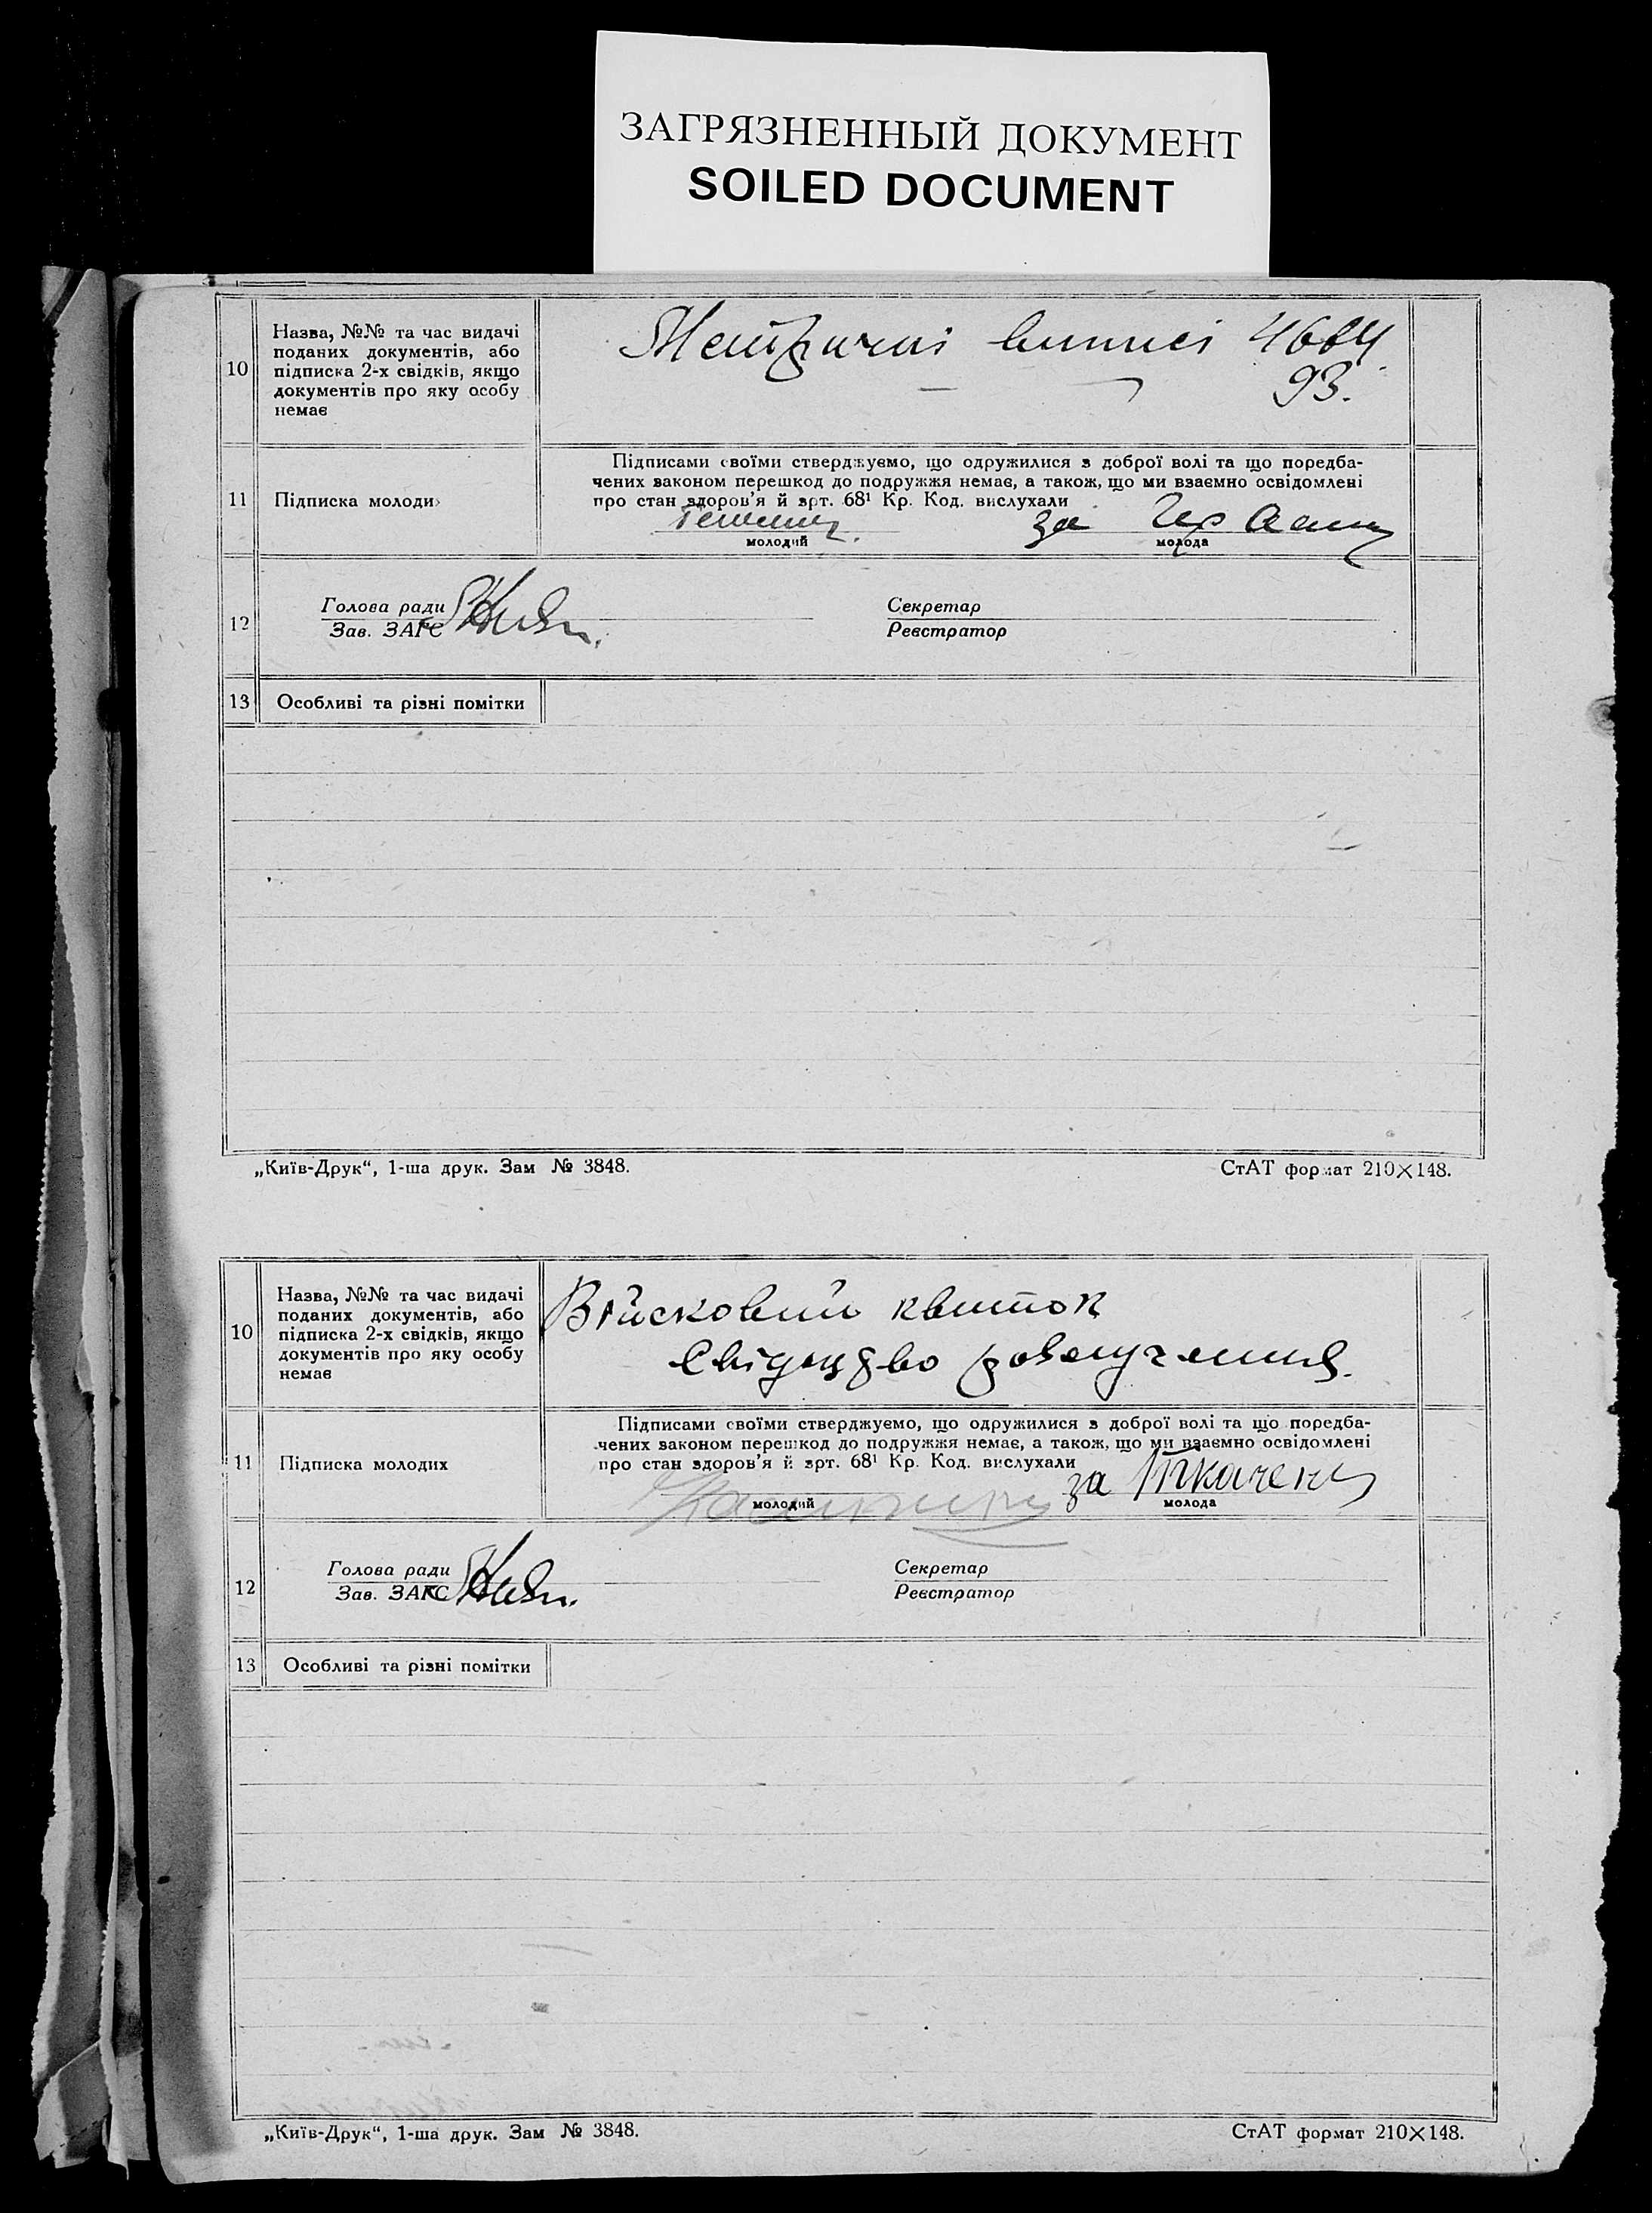 ЗАГРЯЗНЕННЫЙ ДОКУМЕНТ
SOILED DOCUMENT
10
Назва, №№ та час видачі
поданих документів, або
підписка 2-х свідків, якщо
документів про яку особу
немає
Метричні виписі
93.
11
Підписка молоди
Підписами своїми стверджуємо, що одружилися з доброї волі та що поредба-
чених законом перешкод до подружжя немає, а також, що ми взаємно освідомлені
про стан здоров'я й арт. 68¹ Кр. Код. вислухали
за
молодий
молода
12
Голова ради
Зав. ЗАГС
Секретар
Реєстратор
13
Особливі та різні помітки
„Київ-Друк“, 1-ша друк. Зам № 3848.
СтАТ формат 210×148.
10
Назва, №№ та час видачі
поданих документів, або
підписка 2-х свідків, якщо
документів про яку особу
немає
Військовий квиток
Свідоцтво розлучення.
11
Підписка молодих
Підписами своїми стверджуємо, що одружилися з доброї волі та що поредба-
чених законом перешкод до подружжя немає, а також, що ми взаємно освідомлені
про стан здоров'я й арт. 68¹ Кр. Код. вислухали
за Ткаченк
молодий
молода
12
Голова ради
Зав. ЗАГС
Секретар
Реєстратор
13
Особливі та різні помітки
„Київ-Друк“, 1-ша друк. Зам № 3848.
СтАТ формат 210×148.